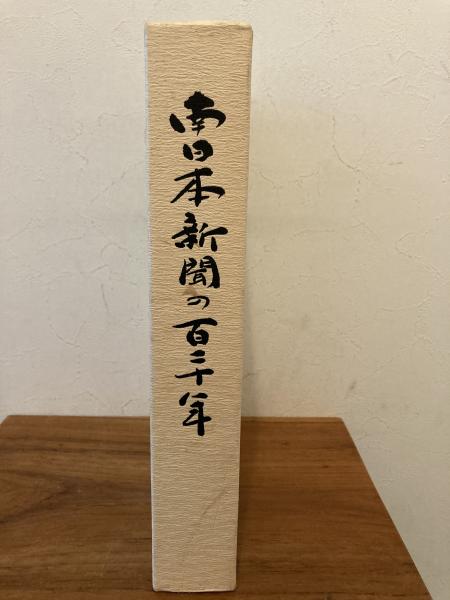 南日本新聞の百二十年